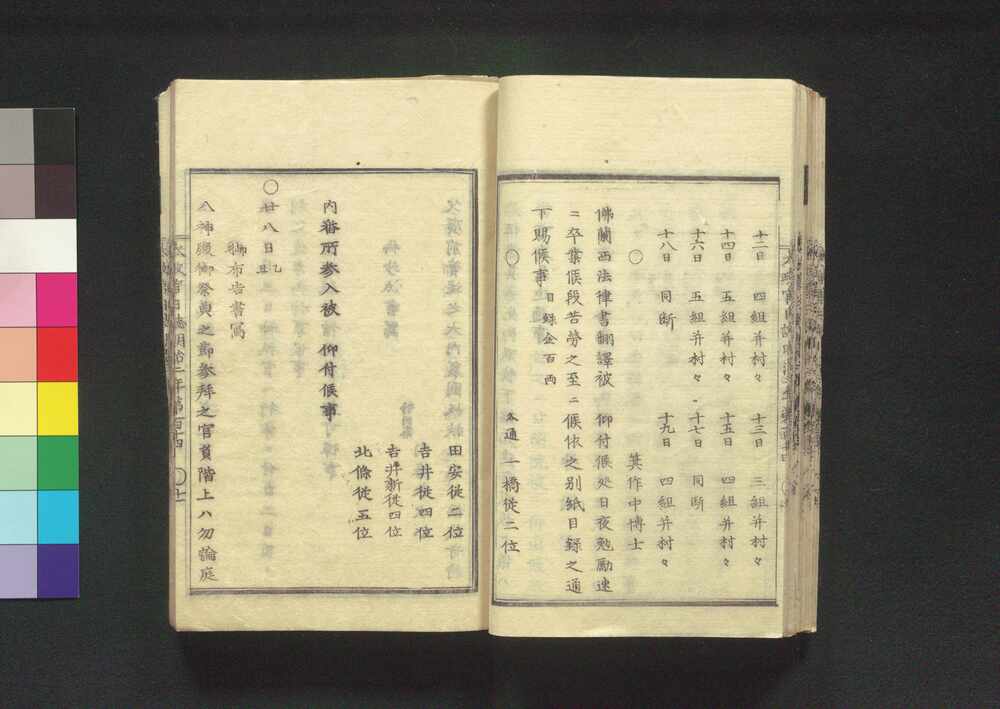 十二日 四組并村々 十三日 三組并村々
十四日 五組并村々 十五日 四組并村々
十六日 五組并村々 十七日 同断
十八日 同断 十九日 四組并村々
〇 箕作中博士
佛蘭西法律書翻譯被 仰付候処日夜勉勵速
ニ卒業候段苦勞之至ニ候依之別紙目録之通
下賜候事 目録金百両
〇 各通 一橋従二位
田安従二位
吉井従四位
吉井新従四位
北條従五位
内番所参入被 仰付候事
〇廿八日 乙丑
御布告書寫
八神殿御祭奠之節参拜之官員階上ハ勿論庭
太政官日誌明治二年第百十四 〇十一